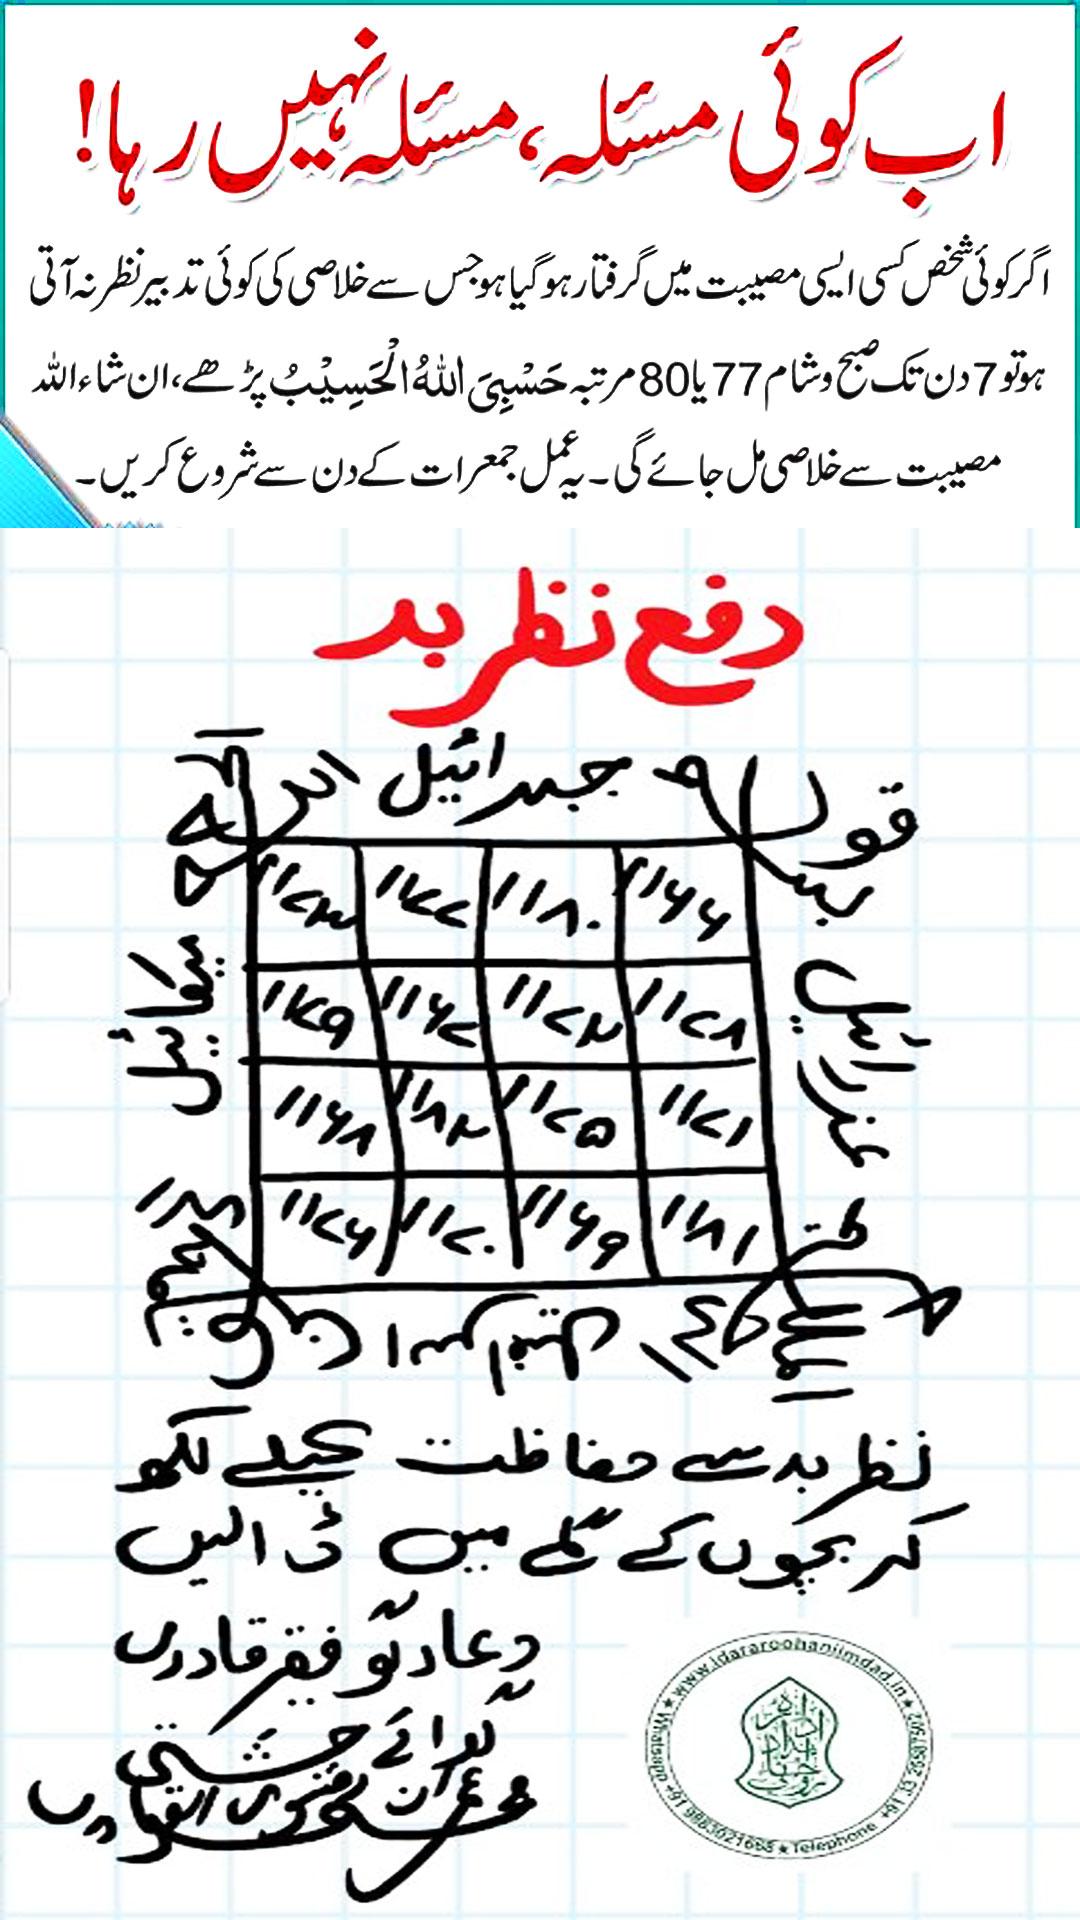 اب کوئی مسئلہ، مسئلہ نہیں رہا!
اگر کوئی شخص کسی ایسی مصیبت میں گرفتار ہو گیا ہو جس سے خلاصی کی کوئی تدبیر نظر نہ آتی
ہو تو 7 دن تک صبح و شام 77 یا 80 مرتبہ حَسْبِیَ اللّٰهُ الْحَسِیْبُ پڑھے، ان شاء اللہ
مصیبت سے خلاصی مل جائے گی۔ یہ عمل جمعرات کے دن سے شروع کریں۔
دفع نظر بد
جبرائیل
۱۱۷۳ ۱۱۷۷ ۱۱۸۰ ۱۱۶۶
۱۱۷۹ ۱۱۶۷ ۱۱۷۲ ۱۱۷۸
۱۱۶۸ ۱۱۸۲ ۱۱۷۵ ۱۱۷۱
۱۱۷۶ ۱۱۷۰ ۱۱۶۹ ۱۱۸۱
میکائیل
عزرائیل
نظر بد سے حفاظت کیلے لکھ
کر بچوں کے گلے میں ڈالیں
دعا گو فقیر قادری
گدائے چشتی
www.idararoohaniimdad.in
Whatsapp +91 9883021668 ★ Telephone +91 33 26587502
ادارہ
امداد
روحانی